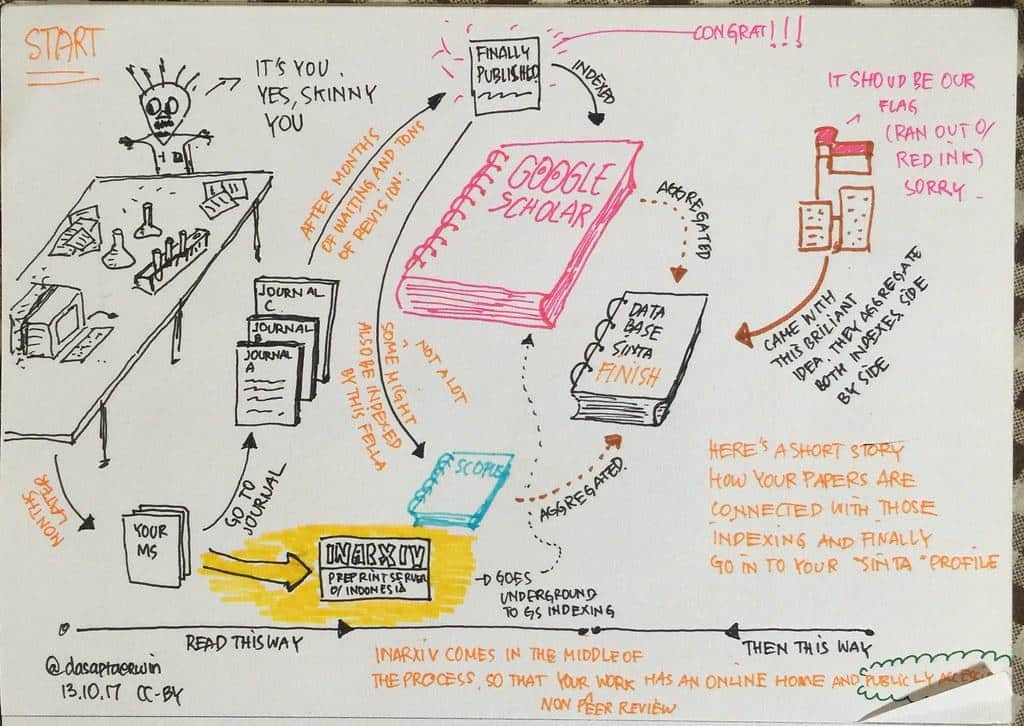 START
IT'S YOU.
YES, SKINNY
YOU
MONTHS
LATER
YOUR
MS
GO TO
JOURNAL
JOURNAL
C
JOURNAL
B
JOURNAL
A
AFTER MONTHS
OF WAITING AND TONS
OF REVISION.
FINALLY
PUBLISHED
CONGRAT!!!
INDEXED
GOOGLE
SCHOLAR
SOME MIGHT
ALSO BE INDEXED
BY THIS FELLA
NOT A LOT
SCOPUS
AGGREGATED
AGGREGATED.
DATA
BASE
SINTA
FINISH
IT SHOUD BE OUR
FLAG
(RAN OUT O/
RED INK)
SORRY
CAME WITH
THIS BRILIANT
IDEA. THEY AGGREGATE
BOTH INDEXES SIDE
BY SIDE
INARXIV
PREPRINT SERVER
O/ INDONESIA
GOES
UNDERGROUND
TO GS INDEXING
HERE'S A SHORT STORY
HOW YOUR PAPERS ARE
CONNECTED WITH THOSE
INDEXING AND FINALLY
GO IN TO YOUR "SINTA" PROFILE
READ THIS WAY
THEN THIS WAY
INARXIV COMES IN THE MIDDLE OF
THE PROCESS, SO THAT YOUR WORK HAS AN ONLINE HOME AND PUBLICLY
NON PEER REVIEW
@dasaptaerwin
13.10.17 CC-BY